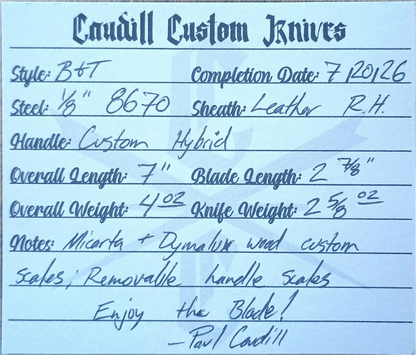 Caudill Custom Knives
Style: B&T Completion Date: 7/20/26
Steel: 1/8" 8670 Sheath: Leather R.H.
Handle: Custom Hybrid
Overall Length: 7" Blade Length: 2 7/8"
Overall Weight: 4 oz Knife Weight: 2 5/8 oz
Notes: Micarta + Dymalux wood custom
scales; Removable handle scales
Enjoy the Blade!
- Paul Caudill